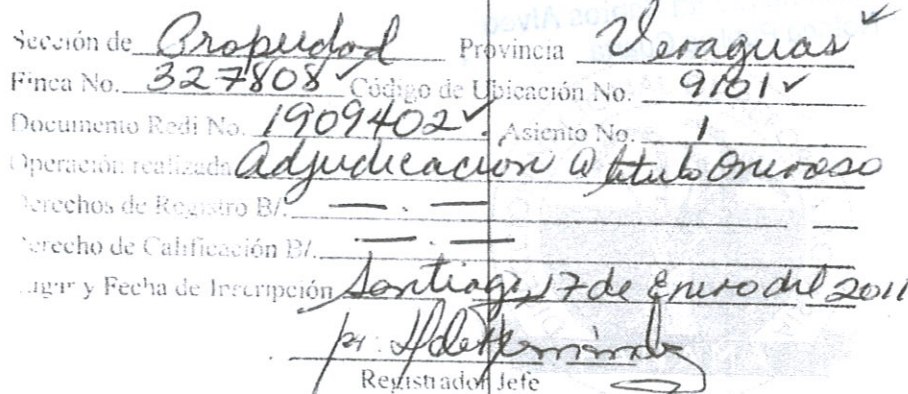 Sección de Propiedad Provincia Veraguas
Finca No. 327808 Código de Ubicación No. 9101
Documento Redi No. 1909402. Asiento No. 1
Operación realizada Adjudicación a título Oneroso
Derechos de Registro B/. — . —
Derecho de Calificación B/. — . —
Lugar y Fecha de Inscripción Santiago, 17 de Enero del 2011
Registrador Jefe